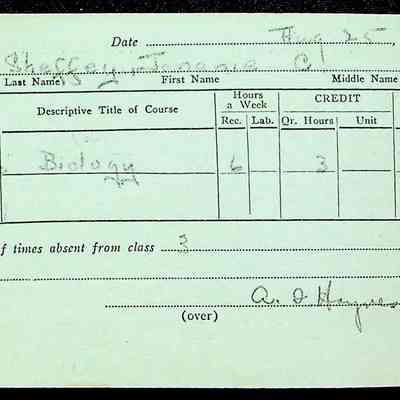 Date Aug 25,
Sheffey
Last Name First Name Middle Name
Descriptive Title of Course Hours a Week CREDIT
Rec. Lab. Qr. Hours Unit
Biology 6 3
f times absent from class 3
(over)